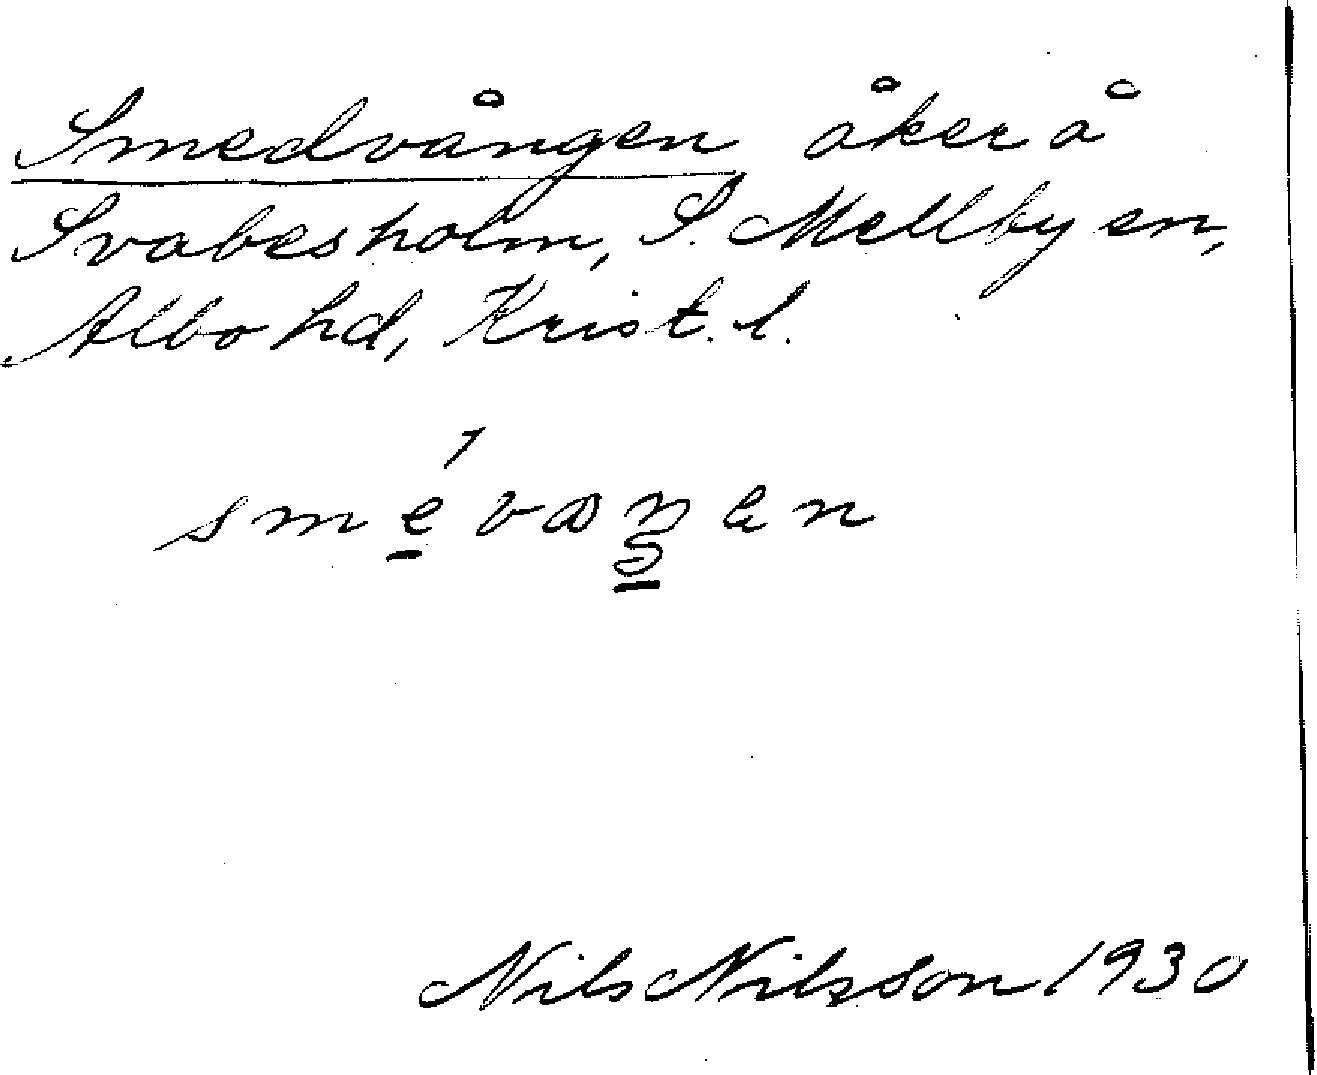 Smedvången åker å
Svabesholm, S. Mellby sn,
Albo hd, Krist. l.
Nils Nilsson 1930